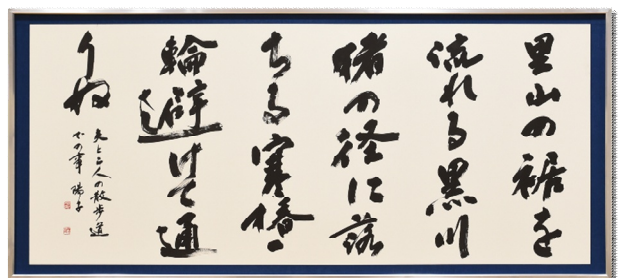 里山の裾を
流れる黒川
猪の径に落
ちる寒椿一
輪避けて通
りぬ
夫と二人の散歩道
陽子